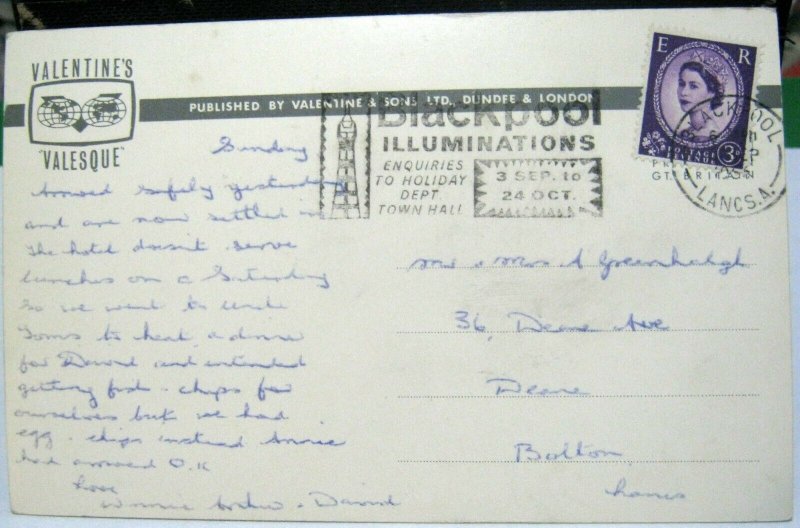 VALENTINE'S
"VALESQUE"
PUBLISHED BY VALENTINE & SONS LTD., DUNDEE & LONDON
Blackpool
ILLUMINATIONS
ENQUIRIES
TO HOLIDAY
DEPT
TOWN HALL
3 SEP. to
24 OCT.
E R
POSTAGE
REVENUE
3D
BLACKPOOL
SEP
LANCS.A.
GT. BRITAIN
Sunday
Arrived safely yesterday
and are now settled in
The hotel doesn't serve
lunches on a Saturday
so we went to Uncle
Toms to heat a dinner
for David and intended
getting fish & chips for
ourselves but we had
egg & chips instead Annie
had arrived O.K
Love
Winnie & David
Mr & Mrs A Greenhalgh
36, Deane Ave
Deane
Bolton
Lancs